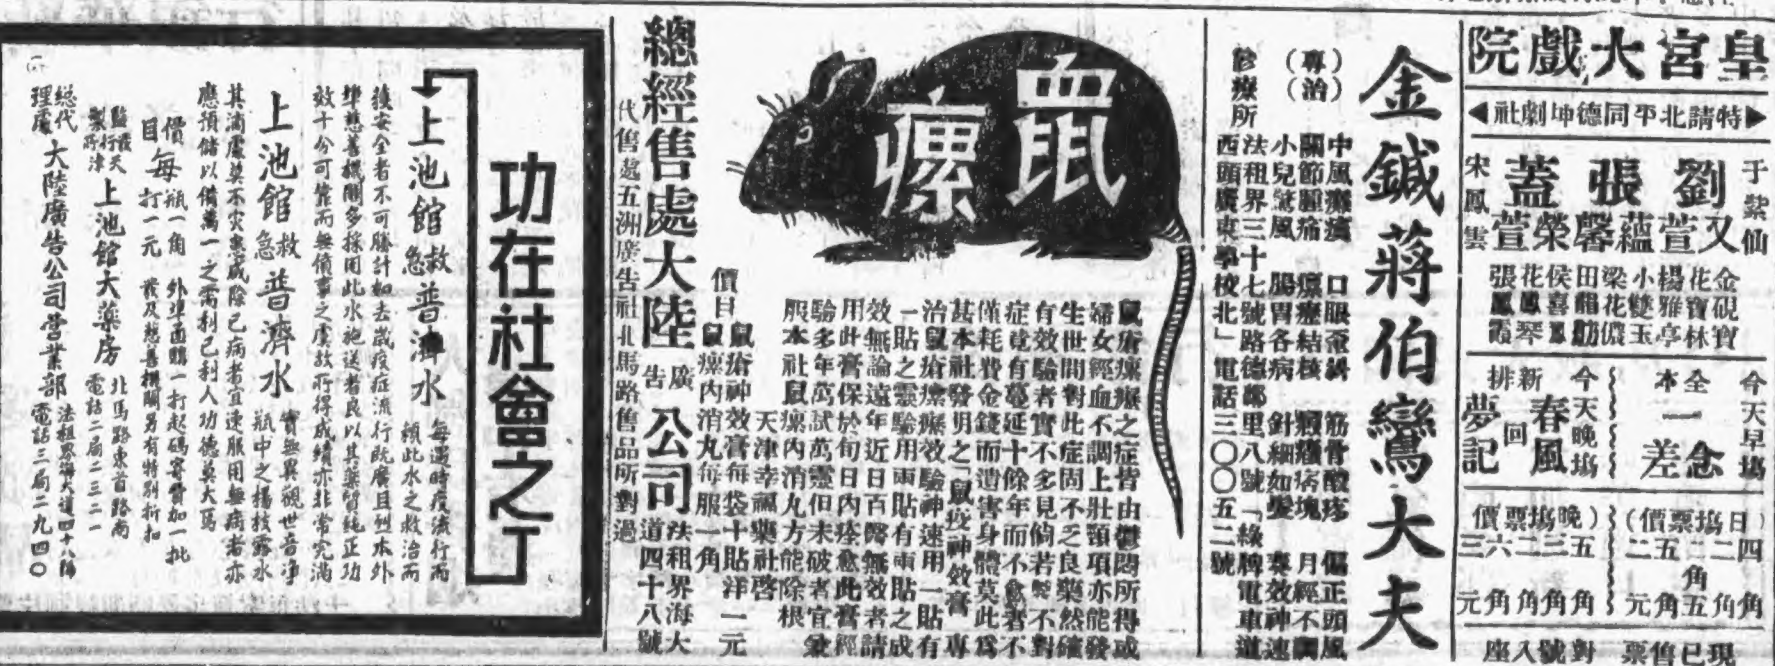 皇宮大戲院
特請北平同德坤劇社
于紫仙
劉又萱
張蘊馨
蓋榮萱
宋鳳雲
金硯寶
花寶林
楊雅亭
小雙玉
梁花儂
田韻舫
侯喜鳳
花鳳琴
張鳳霞
今天早塲
全本
一念差
今天晚塲
新排
春風回夢記
(日塲票價)
四角
二角
二角五
五角
二元
(晚塲票價)
五角
三角
二角
六角
三元
現已售票
對號入座
金鍼蔣伯鸞大夫
(專治)
中風癱瘓 口眼歪斜 筋骨酸疼 偏正頭風
關節腫痛 瘰癧結核 癥癮病塊 月經不調
小兒驚風 腸胃各病 針細如髮 奏效神速
診療所
法租界三十七號路德鄰里八號「綠牌電車道
西頭廣東學校北」電話三〇〇五二號
鼠瘰
鼠瘡瘰癧之症皆由鬱悶所得或
婦女經血不調上壯頸項亦能發
生世間對此症固不乏良藥然確
有效驗者實不多見倘若醫不對
症竟有蔓延十餘年而不愈者不
僅耗費金錢而遭害身體莫此爲
甚本社發明之「鼠瘡神效膏」專
治鼠瘡瘰癧效驗神速用一貼有
一貼之靈驗用兩貼有兩貼之成
效無論遠年近日百醫無效者請
用此膏保於旬日內痊愈此膏經
驗多年萬試萬靈但未破者宜兼
服本社鼠瘰內消丸方能除根
天津幸福藥社啓
價目
鼠瘡神效膏每袋十貼洋一元
鼠瘰內消丸每服一角
總經售處大陸廣告公司
法租界海大道四十八號
代售處五洲廣告社北馬路售品所對過
功在社會之
上池館救急普濟水
每遇時疫流行而
賴此水之救治而
獲安全者不可勝計如去歲疫症流行旣廣且烈本外
埠慈善機關多採用此水施送者良以其藥質純正功
效十分可靠而無僨事之虞故所得成績亦非常完滿
上池館救急普濟水
實無異觀世音淨
瓶中之楊枝露水
其滴處莫不災患咸除已病者宜速服用無病者亦
應預儲以備萬一之需利己利人功德莫大焉
價目
每瓶一角
每打一元
外埠函購一打起碼寄費加一批
發及慈善機關另有特別折扣
監製
天津
上池館大藥房
北馬路東首路南
電話二局二三二一
總代理處
大陸廣告公司營業部
法租界海大道四十八號
電話三局二九四〇